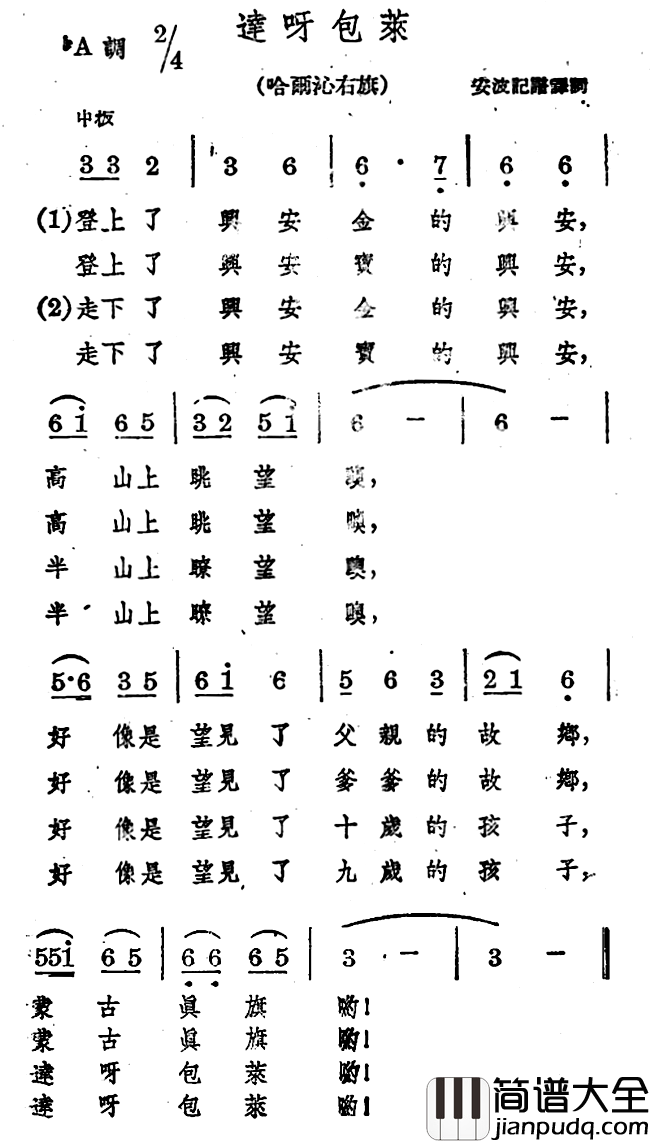 達呀包萊
♭A 調 2/4
(哈爾沁右旗)
安波記譜譯詞
中板
3 3 2 | 3 6 | 6 · 7 | 6 6 |
(1)登上了 興 安 金 的 興 安,
登上了 興 安 寶 的 興 安,
(2)走下了 興 安 金 的 興 安,
走下了 興 安 寶 的 興 安,
6 i 6 5 | 3 2 5 i | 6 － | 6 － |
高 山上 眺 望 噢,
高 山上 眺 望 噢,
半 山上 瞭 望 噢,
半 山上 瞭 望 噢,
5·6 3 5 | 6 i 6 | 5 6 3 | 2 1 6 |
好 像是 望見 了 父 親 的 故 鄉,
好 像是 望見 了 爹 爹 的 故 鄉,
好 像是 望見 了 十 歲 的 孩 子,
好 像是 望見 了 九 歲 的 孩 子,
5 5 i 6 5 | 6 6 6 5 | 3 － | 3 － ‖
蒙 古 眞 旗 喲!
蒙 古 眞 旗 喲!
達 呀 包 萊 喲!
達 呀 包 萊 喲!
简谱大全
jianpu.cn